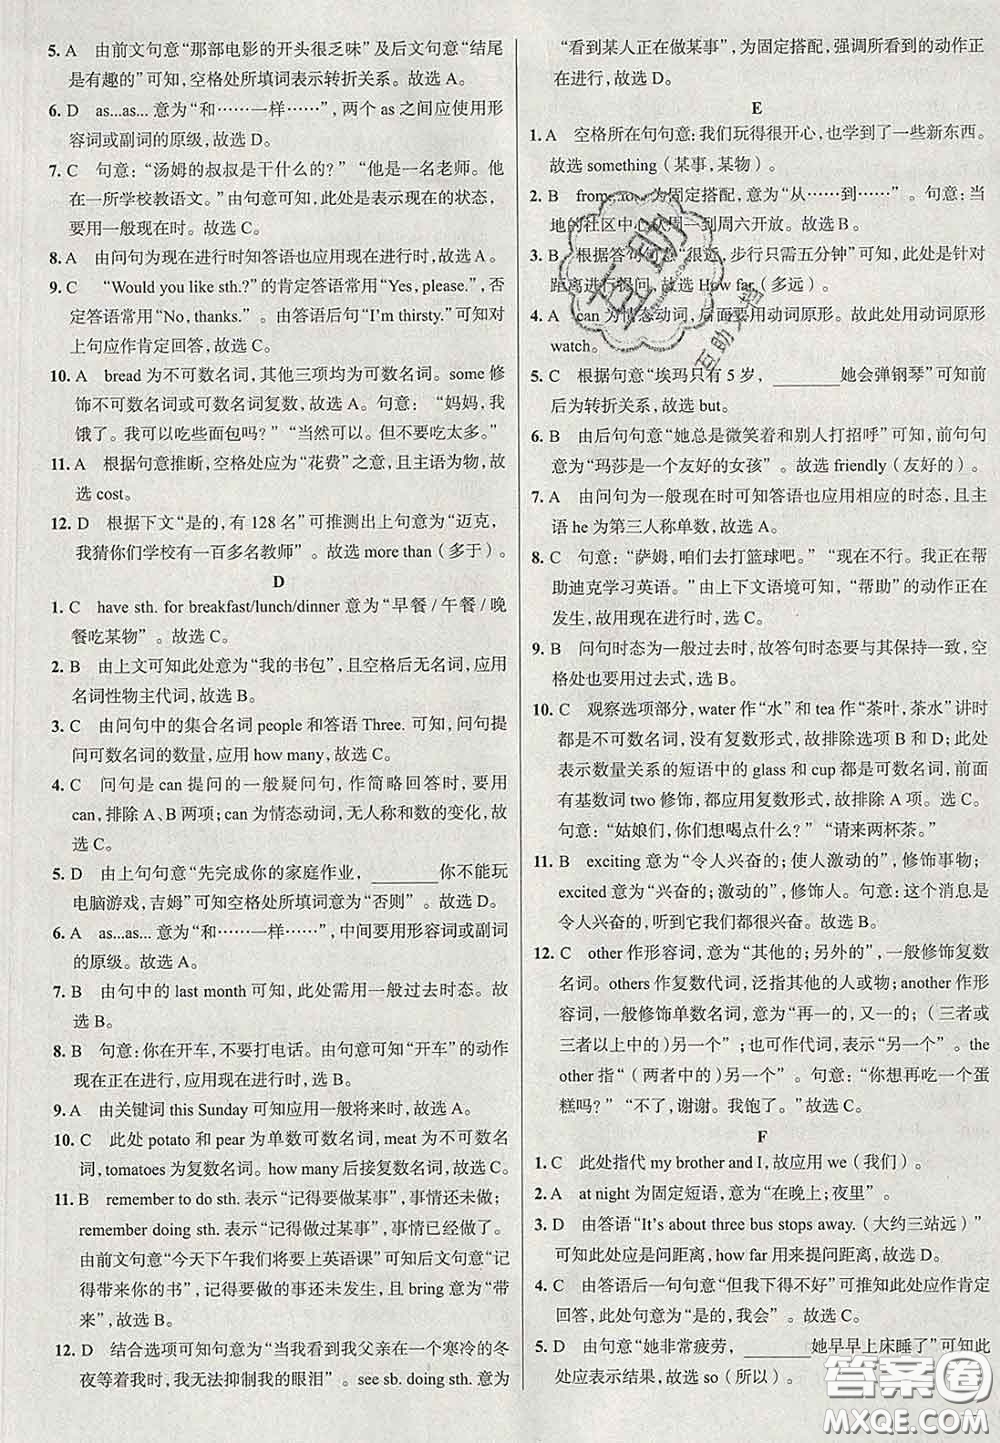 5. A　由前文句意“那部电影的开头很乏味”及后文句意“结尾
是有趣的”可知,空格处所填词表示转折关系。故选 A。
6. D　as...as... 意为“和……一样……”,两个 as 之间应使用形
容词或副词的原级,故选 D。
7. C　句意:“汤姆的叔叔是干什么的?”“他是一名老师。他
在一所学校教语文。”由句意可知,此处是表示现在的状态,
要用一般现在时。故选 C。
8. A　由问句为现在进行时知答语也应用现在进行时,故选 A。
9. C　“Would you like sth.?”的肯定答语常用“Yes, please.”,否
定答语常用“No, thanks.”。由答语后句“I'm thirsty.”可知对
上句应作肯定回答,故选 C。
10. A　bread 为不可数名词,其余三项均为可数名词。some 修
饰不可数名词或可数名词复数,故选 A。句意:“妈妈,我
饿了。我可以吃些面包吗?”“当然可以。但不要吃太多。”
11. A　根据句意推断,空格处应为“花费”之意,且主语为物,故
选 cost。
12. D　根据下文“是的,有 128 名”可推测出上句意为“迈克,
我猜你们学校有一百多名教师”。故选 more than(多于)。
D
1. C　have sth. for breakfast/lunch/dinner 意为“早餐/午餐/晚
餐吃某物”。故选 C。
2. B　由上文可知此处意为“我的书包”,且空格后无名词,应用
名词性物主代词,故选 B。
3. C　由问句中的集合名词 people 和答语 Three. 可知,问句提
问可数名词的数量,应用 how many,故选 C。
4. C　问句是 can 提问的一般疑问句,作简略回答时,要用
can,排除 A、B 两项;can 为情态动词,无人称和数的变化,故
选 C。
5. D　由上句句意“先完成你的家庭作业,______你不能玩
电脑游戏,吉姆”可知空格处所填词意为“否则”。故选 D。
6. A　as...as... 意为“和……一样……”,中间要用形容词或副词
的原级。故选 A。
7. B　由句中的 last month 可知,此处需用一般过去时态。故
选 B。
8. B　句意:你在开车,不要打电话。由句意可知“开车”的动作
现在正在进行,应用现在进行时,选 B。
9. A　由关键词 this Sunday 可知应用一般将来时,故选 A。
10. C　此处 potato 和 pear 为单数可数名词,meat 为不可数名
词,tomatoes 为复数名词。how many 后接复数名词,故选 C。
11. B　remember to do sth. 表示“记得要做某事”,事情还未做;
remember doing sth. 表示“记得做过某事”,事情已经做了。
由前文句意“今天下午我们将要上英语课”可知后文句意“记
得带来你的书”,记得要做的事还未发生,且 bring 意为“带
来”,故选 B。
12. D　结合选项可知句意为“当我看到我父亲在一个寒冷的冬
夜等着我时,我无法抑制我的眼泪”。see sb. doing sth. 意为
“看到某人正在做某事”,为固定搭配,强调所看到的动作正
在进行,故选 D。
E
1. A　空格所在句句意:我们玩得很开心,也学到了一些新东西。
故选 something(某事,某物)。
2. B　from...to... 为固定搭配,意为“从……到……”。句意:当
地的社区中心从周一到周六开放。故选 B。
3. B　根据答句句意“很近,步行只需五分钟”可知,此处是针对
距离进行提问,故选 How far(多远)。
4. A　can 为情态动词,后面要用动词原形。故此处用动词原形
watch。
5. C　根据句意“埃玛只有 5 岁,______她会弹钢琴”可知前
后为转折关系,故选 but。
6. B　由后句句意“她总是微笑着和别人打招呼”可知,前句句
意为“玛莎是一个友好的女孩”。故选 friendly(友好的)。
7. A　由问句为一般现在时可知答语也应用相应的时态,且主
语 he 为第三人称单数,故选 A。
8. C　句意:“萨姆,咱们去打篮球吧。”“现在不行。我正在帮
助迪克学习英语。”由上下文语境可知,“帮助”的动作正在
发生,故用现在进行时,选 C。
9. B　问句时态为一般过去时,故答句时态要与其保持一致,空
格处也要用过去式,选 B。
10. C　观察选项部分,water 作“水”和 tea 作“茶叶,茶水”讲时
都是不可数名词,没有复数形式,故排除选项 B 和 D;此处
表示数量关系的短语中的 glass 和 cup 都是可数名词,前面
有基数词 two 修饰,都应用复数形式,故排除 A 项。选 C。
句意:“姑娘们,你们想喝点什么?”“请来两杯茶。”
11. B　exciting 意为“令人兴奋的;使人激动的”,修饰事物;
excited 意为“兴奋的;激动的”,修饰人。句意:这个消息是
令人兴奋的,听到它我们都很兴奋。故选 B。
12. C　other 作形容词,意为“其他的;另外的”,一般修饰复数
名词。others 作复数代词,泛指其他的人或物;another 作形
容词,一般修饰单数名词,意为“再一的,又一的;(三者或
三者以上中的)另一个”;也可作代词,表示“另一个”。the
other 指“(两者中的)另一个”。句意:“你想再吃一个蛋
糕吗?”“不了,谢谢。我饱了。”故选 C。
F
1. C　此处指代 my brother and I,故应用 we(我们)。
2. A　at night 为固定短语,意为“在晚上;夜里”。
3. D　由答语“It's about three bus stops away.(大约三站远)”
可知此处应是问距离,how far 用来提问距离,故选 D。
4. C　由答语后一句句意“但我下得不好”可推知此处应作肯定
回答,此处句意为“是的,我会”。故选 C。
5. D　由句意“她非常疲劳,______她早早上床睡了”可知此
处应表示结果,故选 so(所以)。
互助
互助文档
答案圈
MXQE.COM